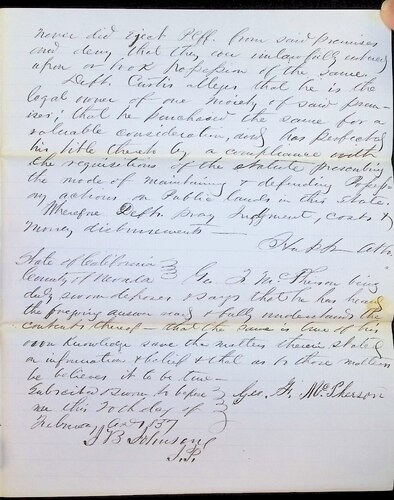 never did eject Plff. from said premises
and deny that they ever unlawfully entered
upon or took possession of the same
Deft. Curtis alleges that he is the
legal owner of one moiety of said prem-
ises; that he purchased the same for a
valuable consideration, and has perfected
his title thereto by a compliance with
the requisitions of the statute prescribing
the mode of maintaining & defending Posses-
ory actions on Public lands in this state.
Wherefore Defts. pray Judgment, costs &
Money disbursements
Atty
State of California
County of Nevada Geo. F. McPherson being
duly sworn deposes & says that he has heard
the foregoing answer read & fully understands the
contents thereof - that the same is true of his
own knowledge save the matters therein stated
on information & belief & that as to those matters
he believes it to be true -
Subscribed & sworn to before Geo. F. McPherson
me this 20th day of
February 1857
J B Johnson
J.P.